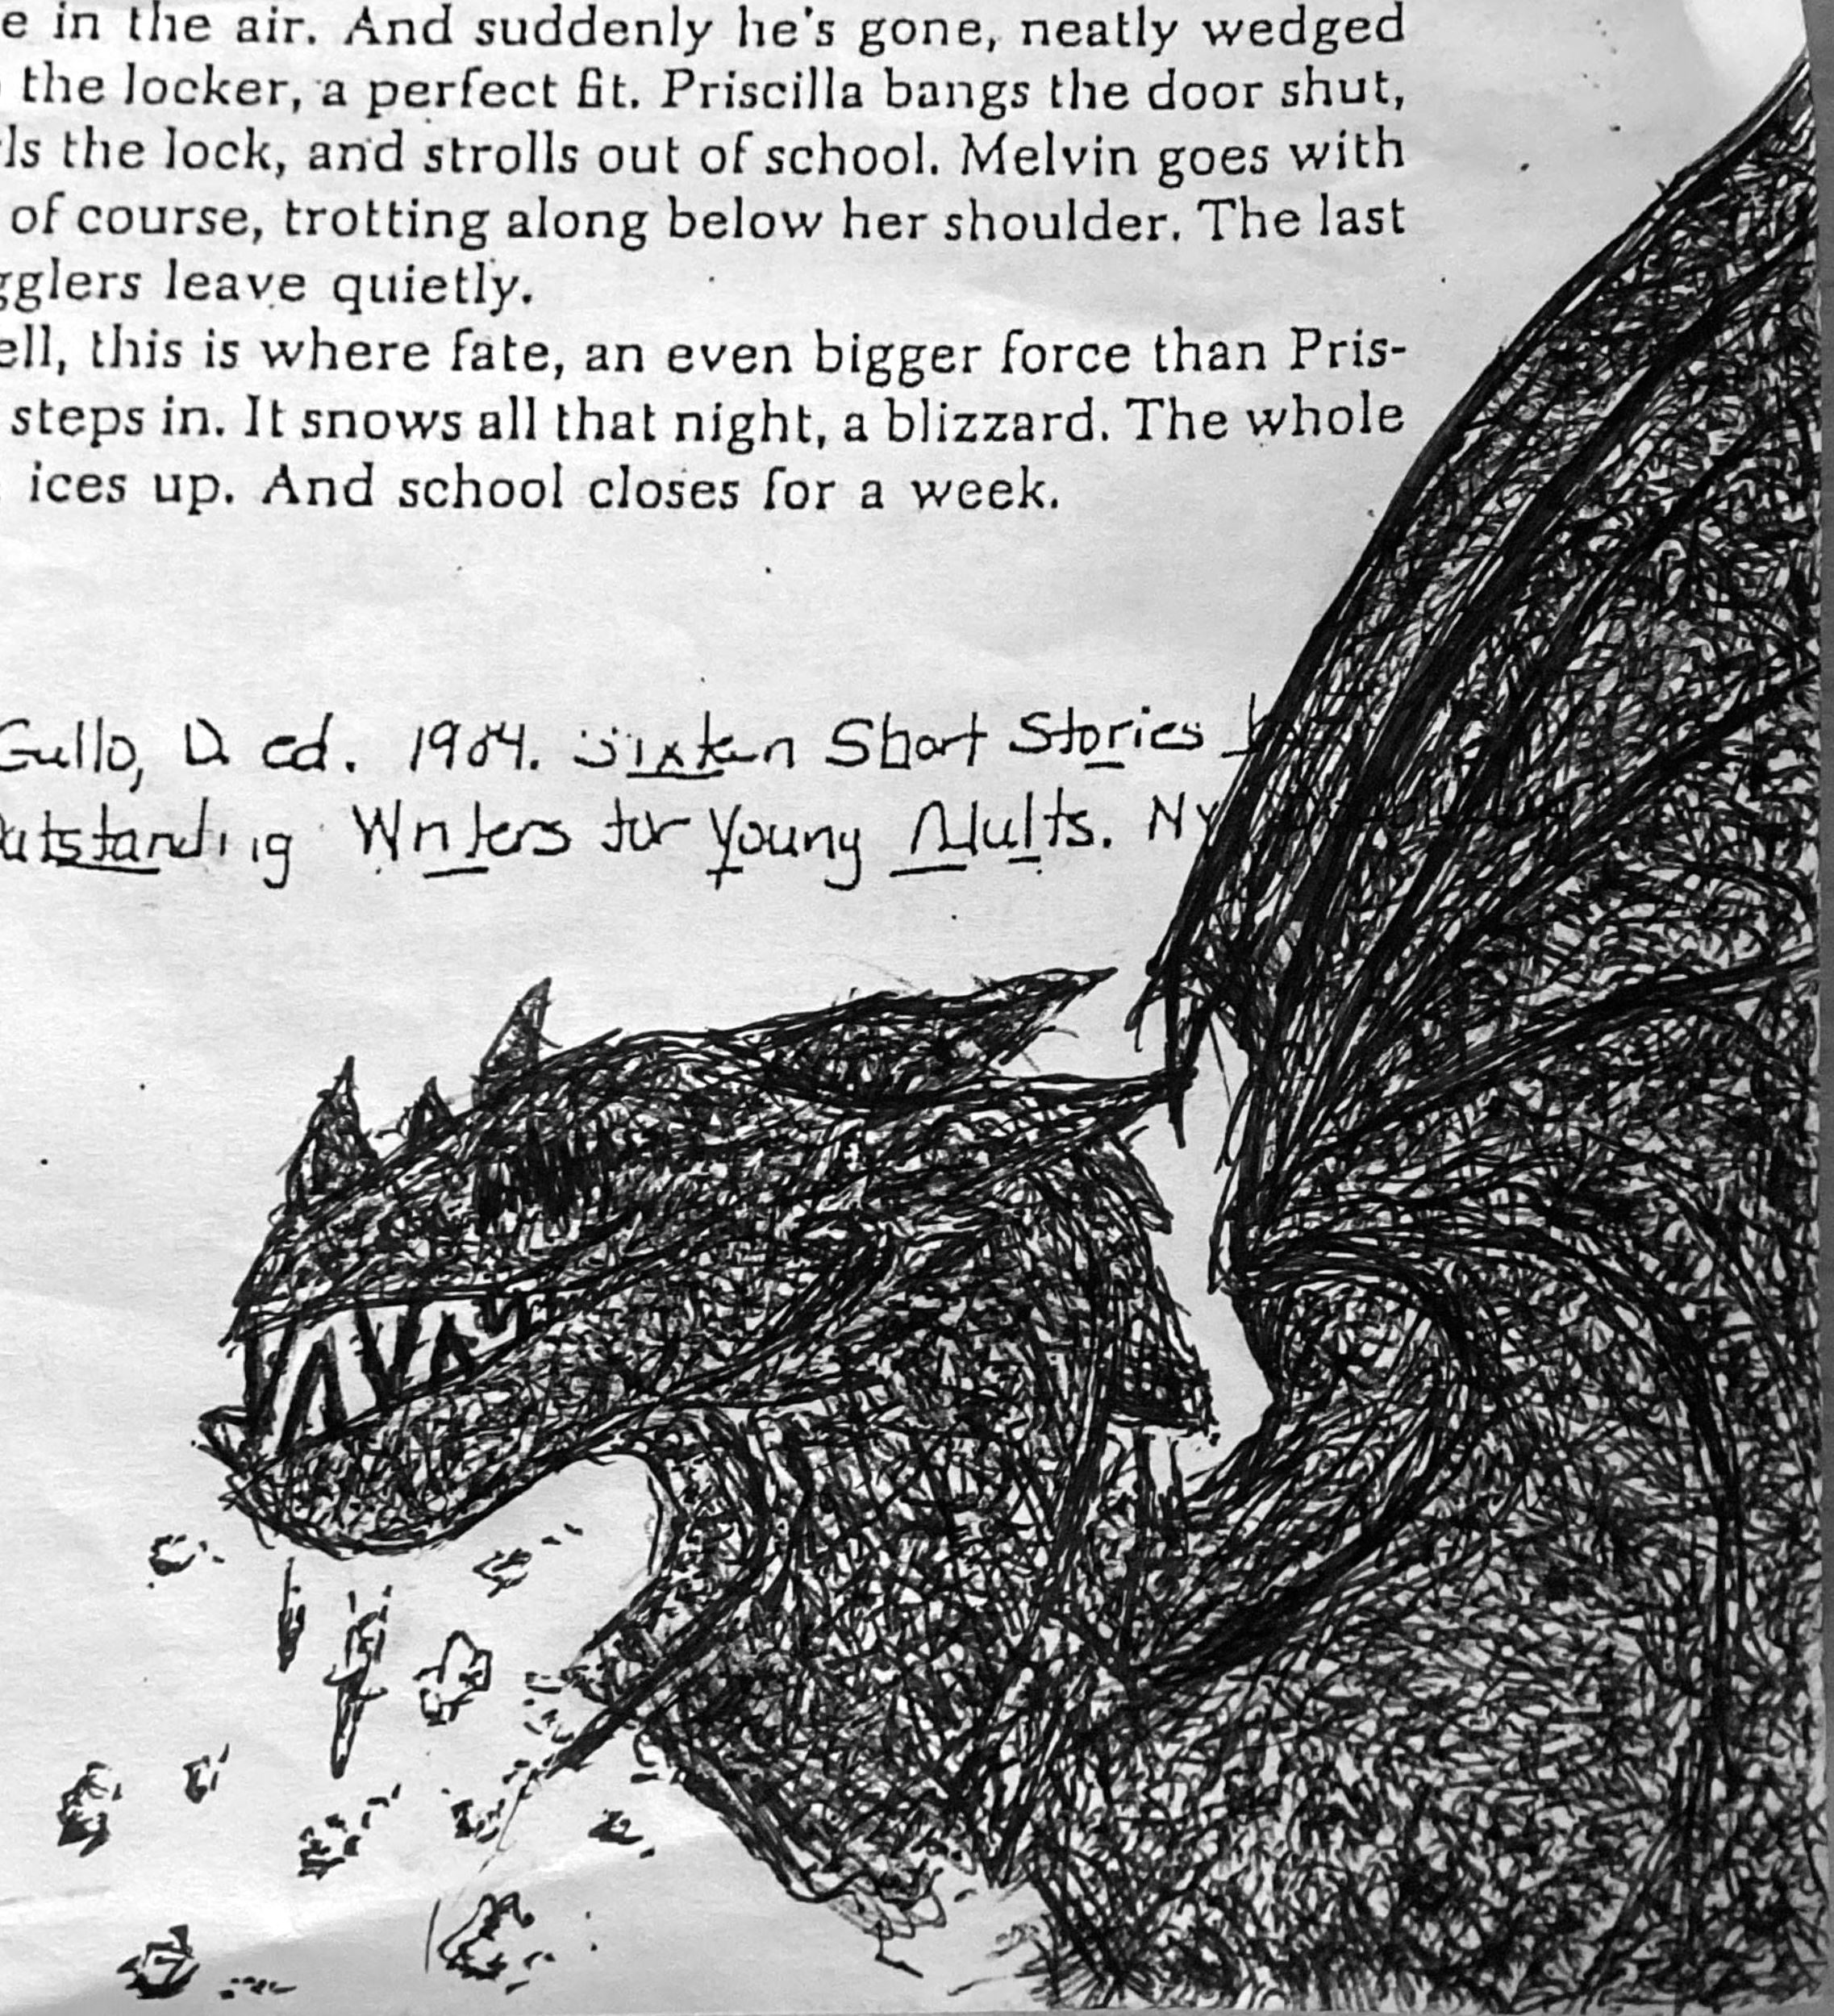 e in the air. And suddenly he's gone, neatly wedged
the locker, a perfect fit. Priscilla bangs the door shut,
ls the lock, and strolls out of school. Melvin goes with
of course, trotting along below her shoulder. The last
gglers leave quietly.
ell, this is where fate, an even bigger force than Pris-
steps in. It snows all that night, a blizzard. The whole
ices up. And school closes for a week.
Gullo, D. ed. 1984. Sixteen Short Stories
utstanding Writers for Young Adults. NY